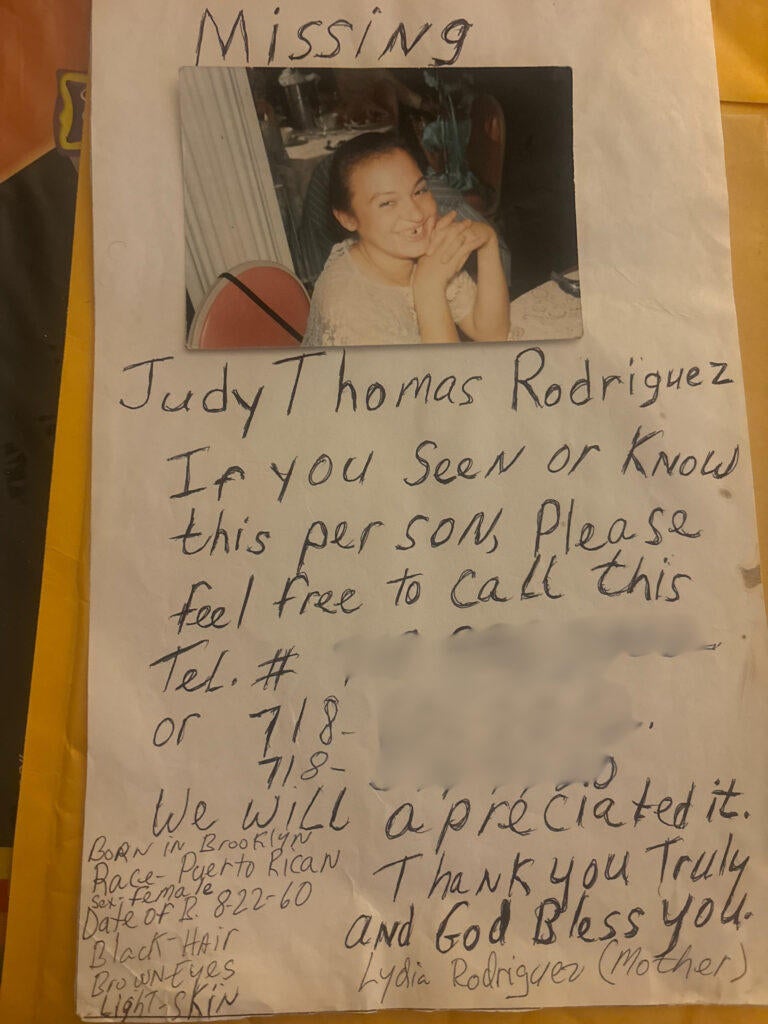 Missing
Judy Thomas Rodriguez
If you seen or know
this person, Please
feel free to call this
Tel. #
or 718-
718-
We will apreciated it.
Thank you Truly
and God Bless you.
Lydia Rodriguez (Mother)
Born in Brooklyn
Race- Puerto Rican
Sex- Female
Date of B. 8-22-60
Black-Hair
Brown Eyes
Light-Skin